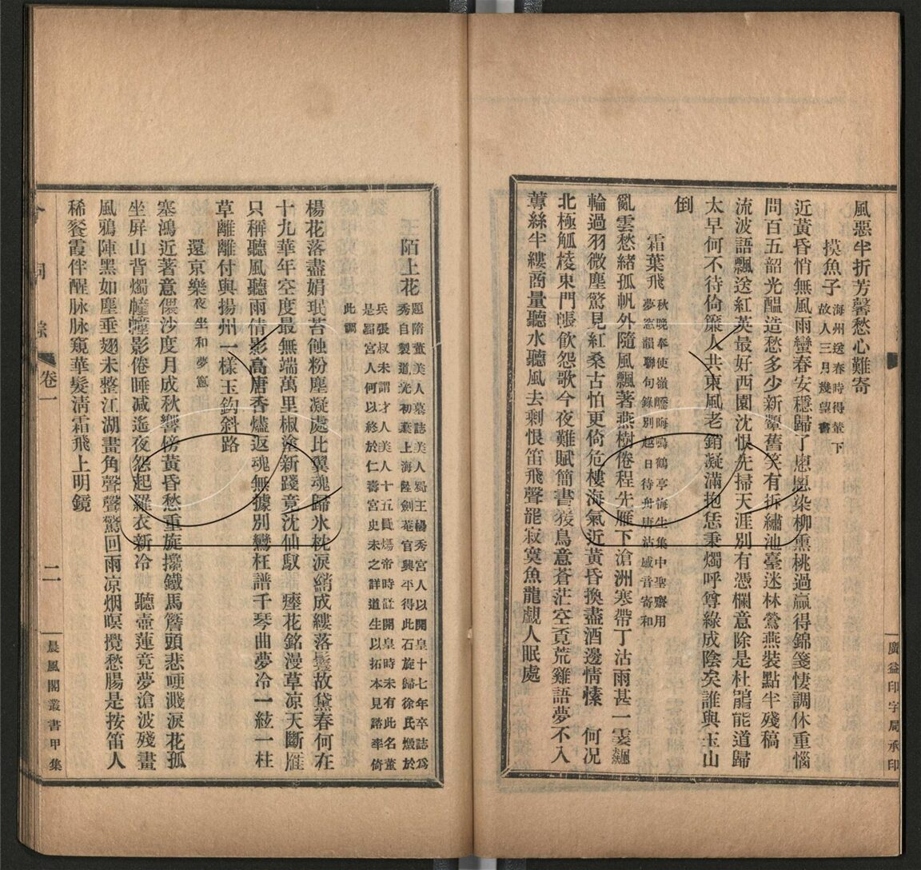 風惡半折芳馨愁心難寄
摸魚子
海州送春時得輦下
故人三月幾望書
近黃昏悄無風雨蠻春安穩歸了恩恩染柳熏桃過贏得錦箋悽調休重惱
問百五韶光醞造愁多少新顰舊笑有拆繡池臺迷林鶯燕裝點半殘稿
流波語飄送紅英最好西園沈恨先掃天涯別有憑欄意除是杜鵑能道歸
太早何不待倚簾人共東風老銷凝滿抱恁秉燭呼尊綠成陰矣誰與玉山
倒
霜葉飛
亂雲愁緒孤帆外隨風飄著燕樹倦程先雁下滄洲寒帶丁沽雨甚一霎飆
輪過羽微塵驚見紅桑古怕更倚危樓海氣近黃昏換盡酒邊情愫 何况
北極觚稜東門帳飲怨歌今夜難賦簡書猨鳥意蒼茫空頁荒雞語夢不入
蓴絲半縷商量聽水聽風去剩恨笛飛聲能寂寞魚龍戲人眠處
廣益印字局承印
陌上花
題隋董美人墓誌美人蜀王楊秀宮人以開皇十七年卒誌爲
秀自製道光初燕上海陸劍菴官興平得此石旋歸徐氏燬於
兵張叔未謂才人美人十五員煬帝時증開皇時未有此名董
是蜀宮人何以終於仁壽宮史未之詳道生以拓本見詒率倚
此調
楊花落盡娟珉苔蝕粉塵凝處比翼魂歸氷枕淚綃成縷落鬟故黛春何在
十九華年空度最無端萬里椒塗新踐竟沈仙馭 瘞花銘漫草凉天斷雁
只稱聽風聽雨倩影高唐香燼返魂無據別鸞枉譜千琴曲夢冷一絃一柱
草離離付與揚州一樣玉鈎斜路
還京樂
夜坐和夢窗
塞鴻近著意偎沙度月成秋響傍黃昏愁重旋攙鐵馬簷頭悲哽濺淚花孤
坐屏山背燭幢幢影倦睡减遙夜怨起羅衣新冷 聽壺蓮竟夢滄波殘畫
風鴉陣黑如塵垂翅未整江湖畫角聲聲驚回雨凉烟暝攪愁腸是按笛人
稀餐霞伴醒脉脉窺華髮淸霜飛上明鏡
卷一
二
晨風閣叢書甲集